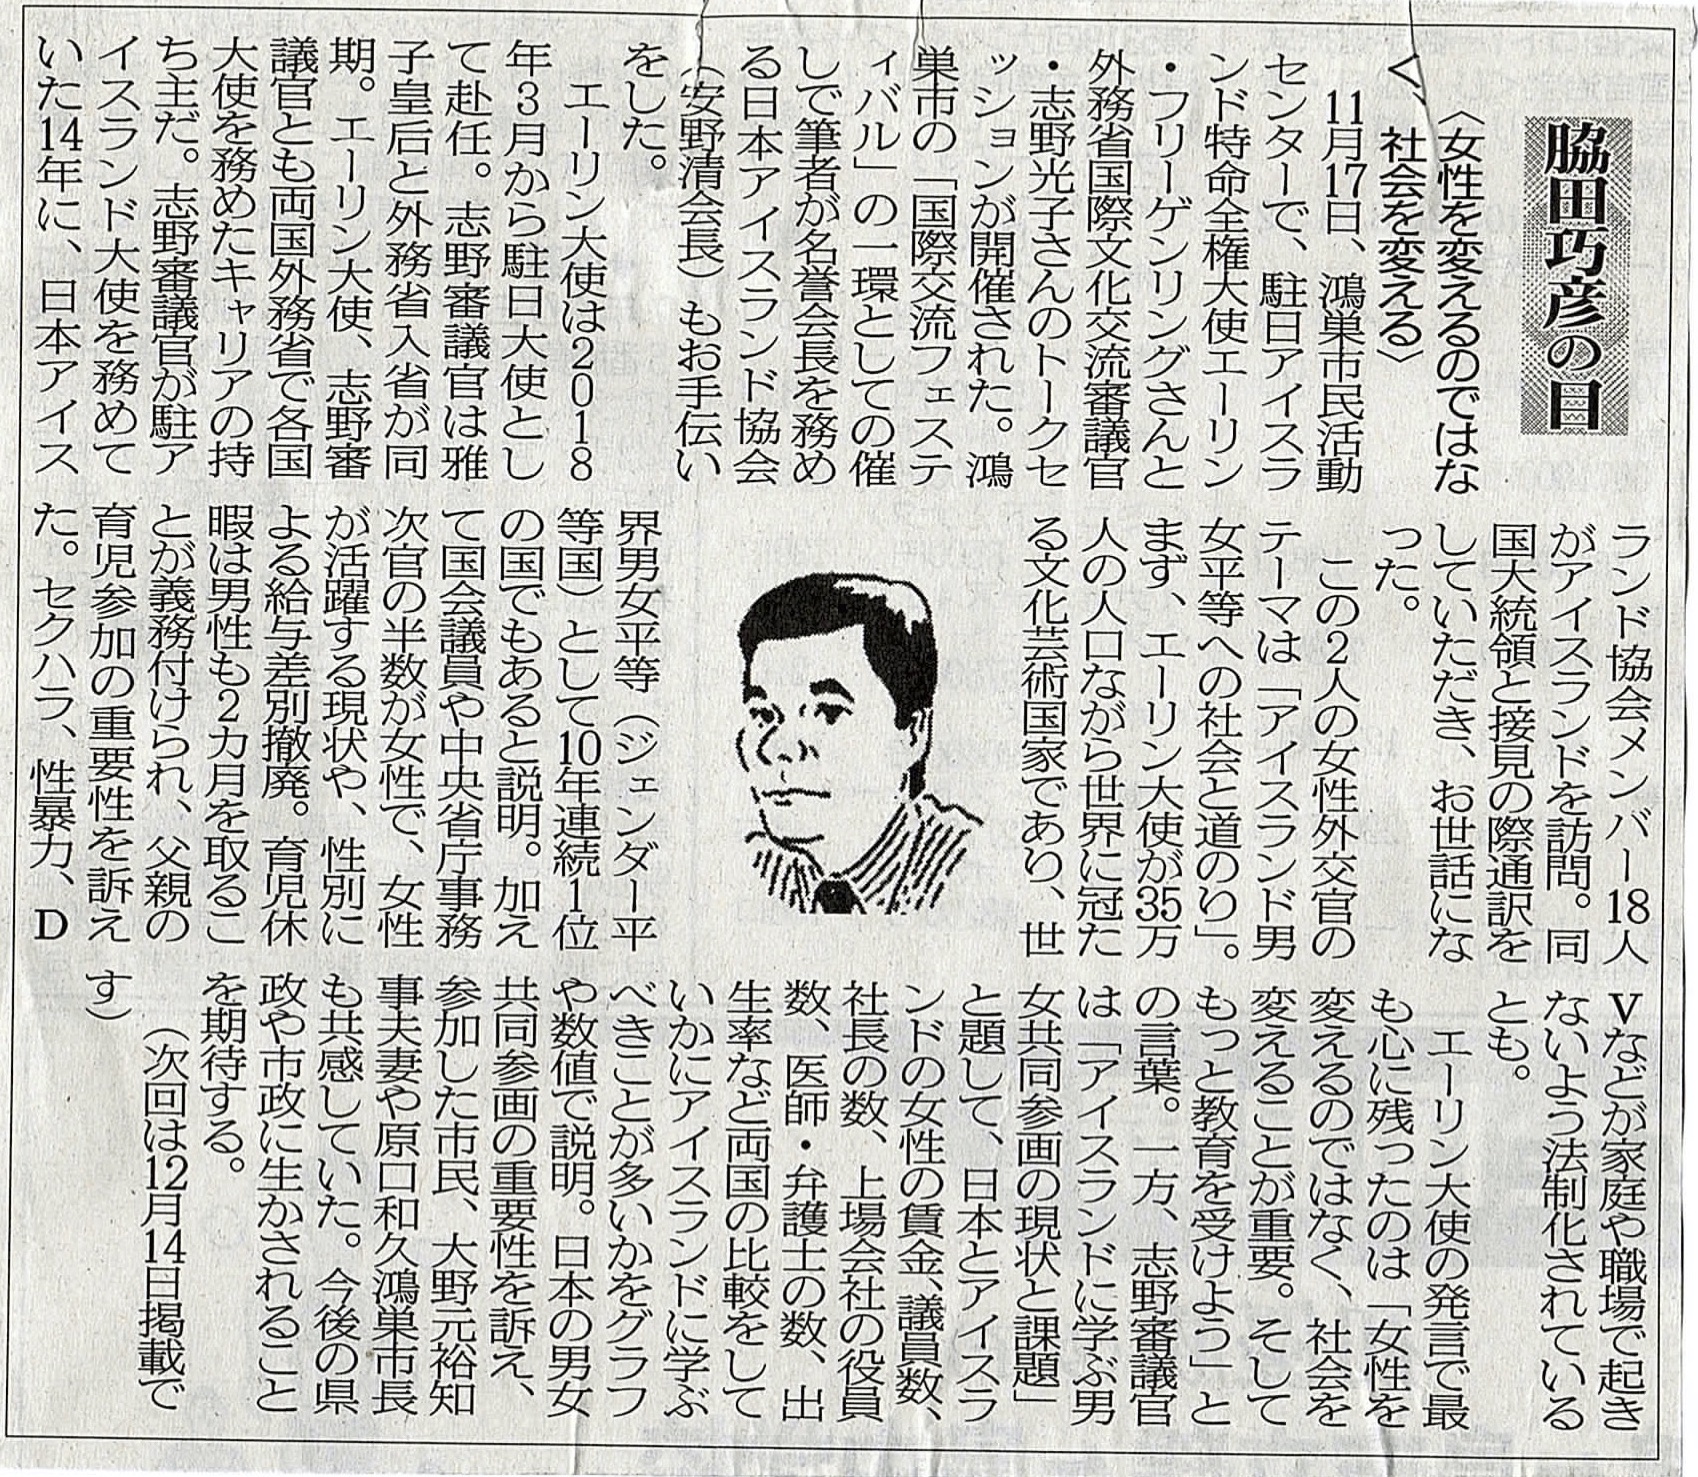 脇田巧彦の目
〈女性を変えるのではな
く、社会を変える〉
11月17日、鴻巣市民活動
センターで、駐日アイスラ
ンド特命全権大使エーリン
・フリーゲンリングさんと
外務省国際文化交流審議官
・志野光子さんのトークセ
ッションが開催された。鴻
巣市の「国際交流フェステ
ィバル」の一環としての催
しで筆者が名誉会長を務め
る日本アイスランド協会
（安野清会長）もお手伝い
をした。
エーリン大使は2018
年3月から駐日大使とし
て赴任。志野審議官は雅
子皇后と外務省入省が同
期。エーリン大使、志野審
議官とも両国外務省で各国
大使を務めたキャリアの持
ち主だ。志野審議官が駐ア
イスランド大使を務めて
いた14年に、日本アイス
ランド協会メンバー18人
がアイスランドを訪問。同
国大統領と接見の際通訳を
していただき、お世話にな
った。
この2人の女性外交官の
テーマは「アイスランド男
女平等への社会と道のり」。
まず、エーリン大使が35万
人の人口ながら世界に冠た
る文化芸術国家であり、世
界男女平等（ジェンダー平
等国）として10年連続1位
の国でもあると説明。加え
て国会議員や中央省庁事務
次官の半数が女性で、女性
が活躍する現状や、性別に
よる給与差別撤廃。育児休
暇は男性も2カ月を取るこ
とが義務付けられ、父親の
育児参加の重要性を訴え
た。セクハラ、性暴力、D
Vなどが家庭や職場で起き
ないよう法制化されている
とも。
エーリン大使の発言で最
も心に残ったのは「女性を
変えるのではなく、社会を
変えることが重要。そして
もっと教育を受けよう」と
の言葉。一方、志野審議官
は「アイスランドに学ぶ男
女共同参画の現状と課題」
と題して、日本とアイスラ
ンドの女性の賃金、議員数、
社長の数、上場会社の役員
数、医師・弁護士の数、出
生率など両国の比較をして
いかにアイスランドに学ぶ
べきことが多いかをグラフ
や数値で説明。日本の男女
共同参画の重要性を訴え、
参加した市民、大野元裕知
事夫妻や原口和久鴻巣市長
も共感していた。今後の県
政や市政に生かされること
を期待する。
（次回は12月14日掲載で
す）